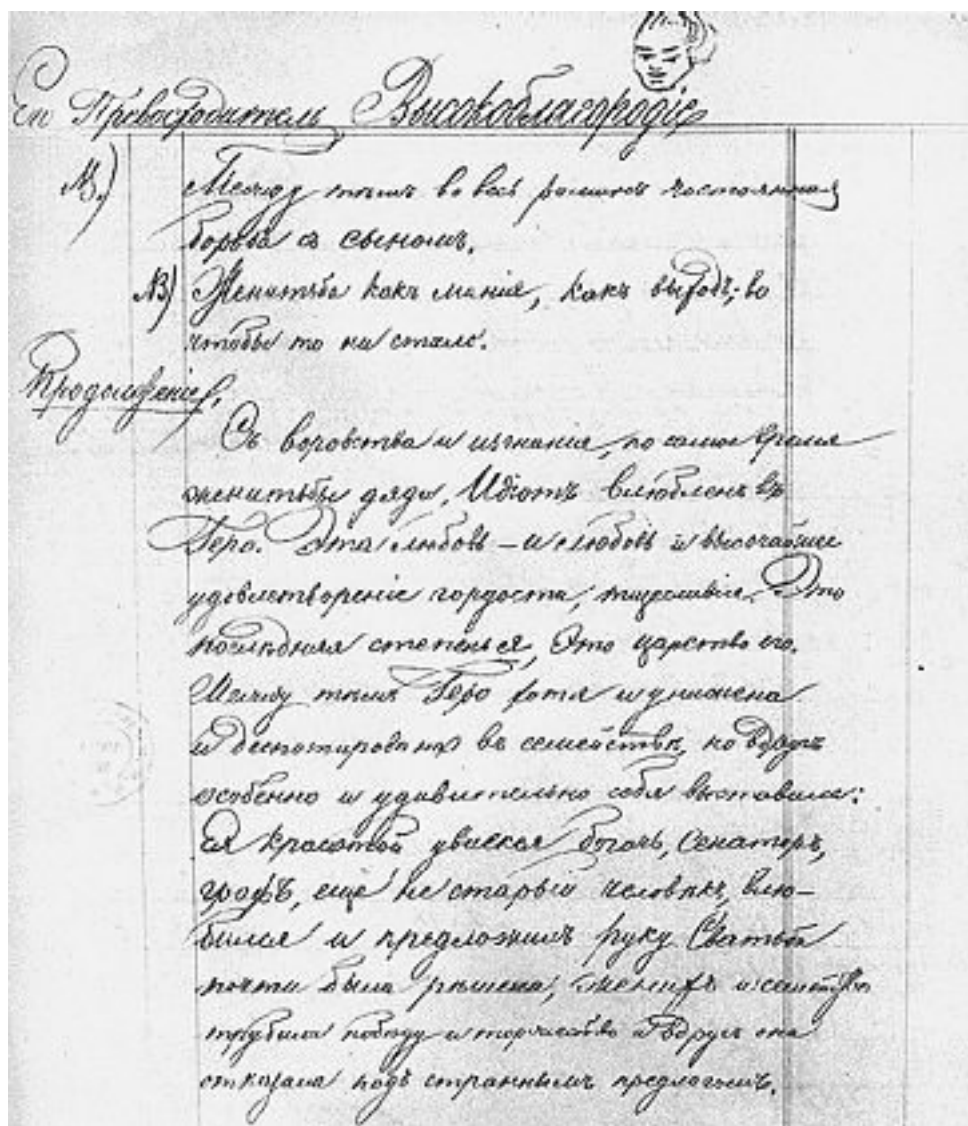 Ея Превосходителъ Высокоблагородіе
NB) Между тѣмъ во весь романъ постоянная
борьба съ сыномъ.
NB) Женитьба какъ манія, какъ выходъ, во
чтобы то ни стало.
Продолженіе,
Съ воровства и изгнанія, по самое время
женитьбы дяди, Идіотъ влюбленъ въ
Геро. Эта любовь – и любовь и высочайшее
удовлетвореніе гордости, тщеславія. Это
послѣдняя степень я, Это царство его.
Между тѣмъ Геро хотя и унижена
и деспотирована въ семействѣ, но вдругъ
особенно и удивительно себя выставила:
Ея красотой увлекся богачъ, Сенаторъ,
графъ, еще не старый человѣкъ, влю-
бился и предложилъ руку. Сватьба
почти была рѣшена, женихъ и семейство
трубили побѣду и торжество и вдругъ она
отказала подъ страннымъ предлогомъ.